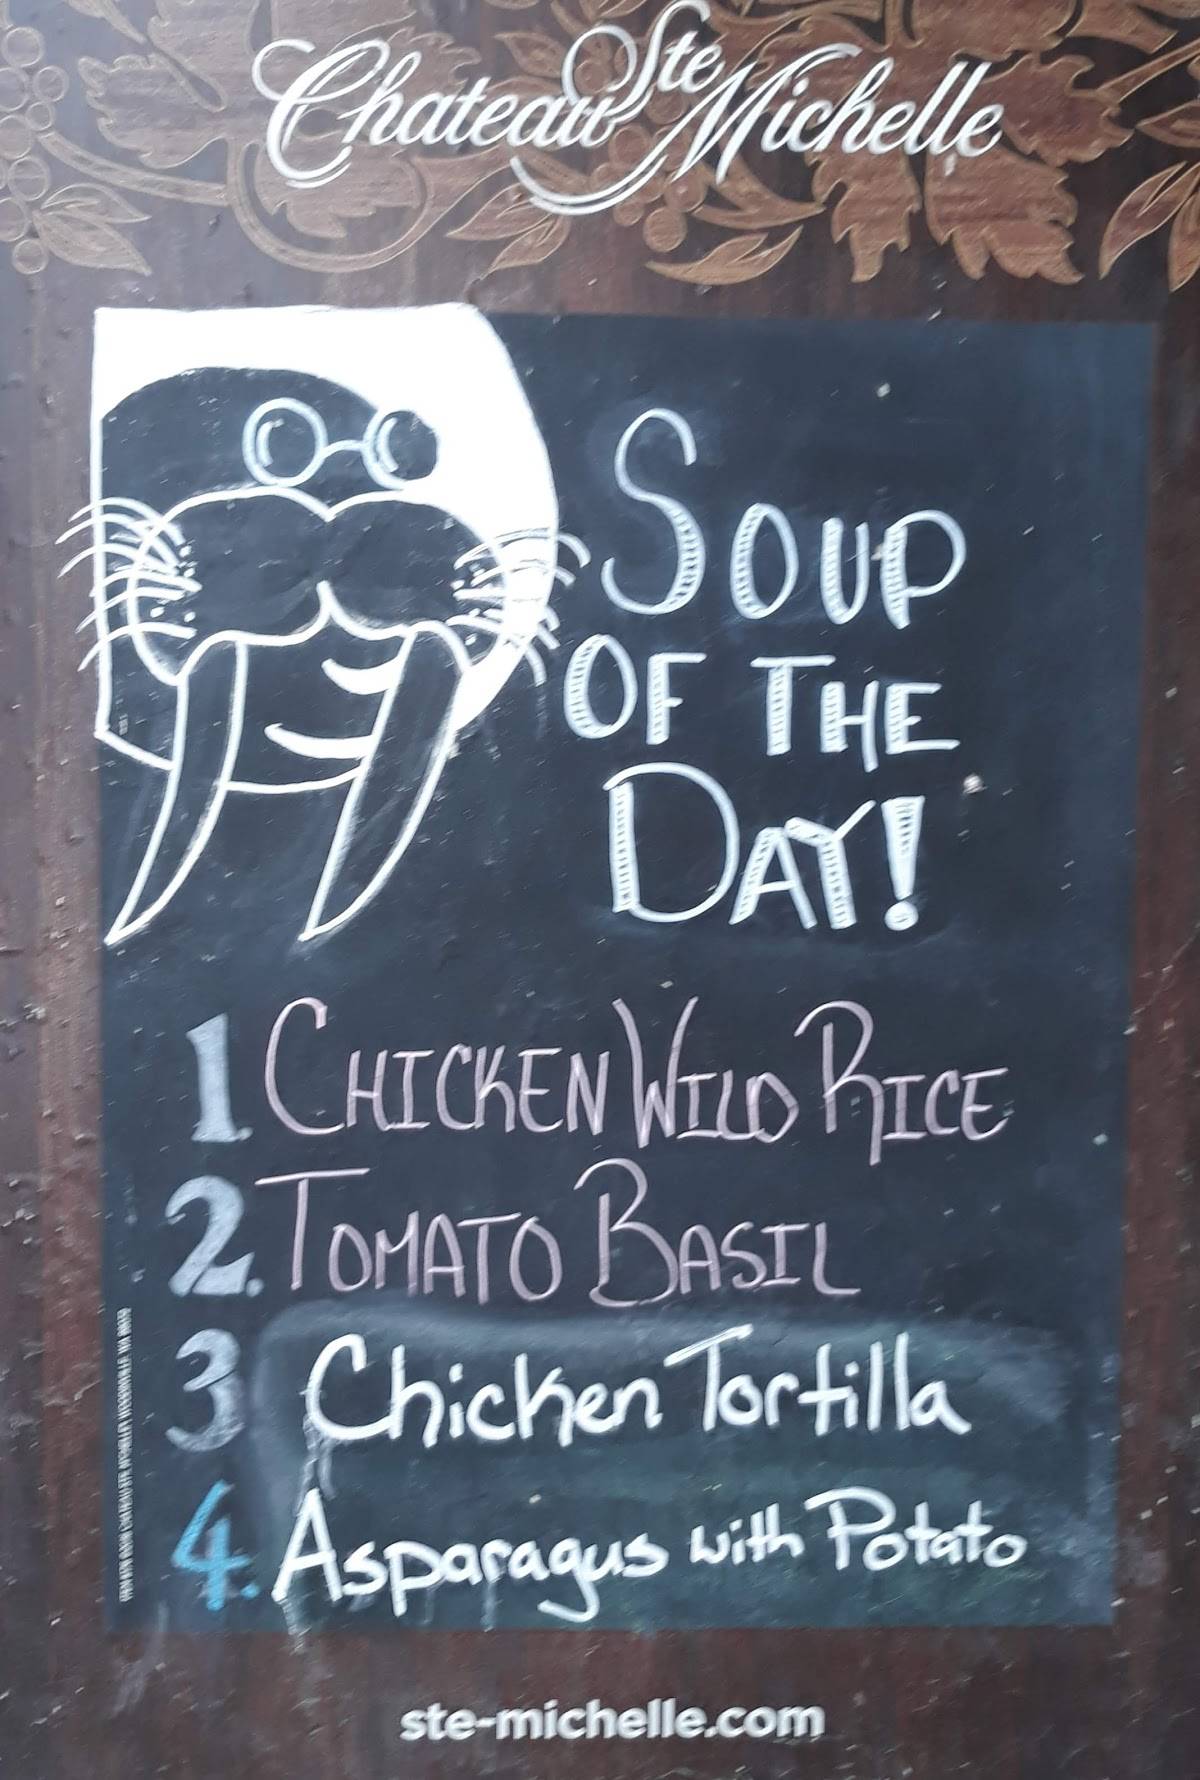 Chateau Ste Michelle
SOUP
OF THE
DAY!
1. CHICKEN WILD RICE
2. TOMATO BASIL
3 Chicken Tortilla
4. Asparagus with Potato
ste-michelle.com